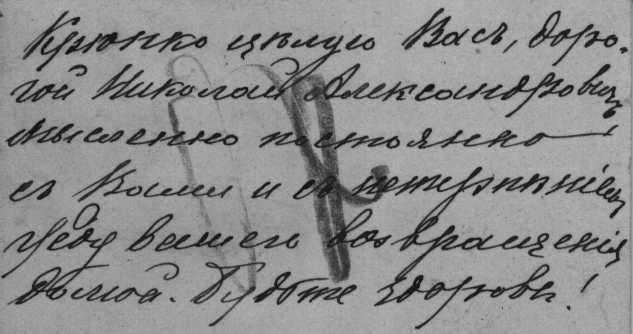 Крѣпко цѣлую Васъ, доро-
гой Николай Александровичъ
Мысленно постоянно
съ Вами и съ нетерпѣніем
жду вашего возвращенія
домой. Будьте здоровы!